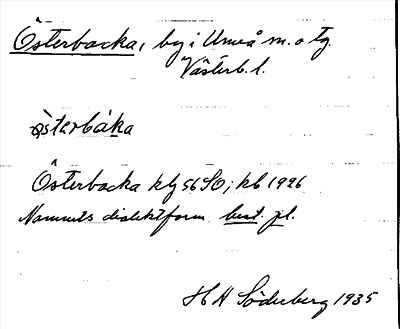 Österbacka, by i Umeå m. o tg.
Västerb. l.
österbáka
Österbacka kbg 56 SO; kb 1926
Namnets dialektform best. pl.
H H Söderberg 1935